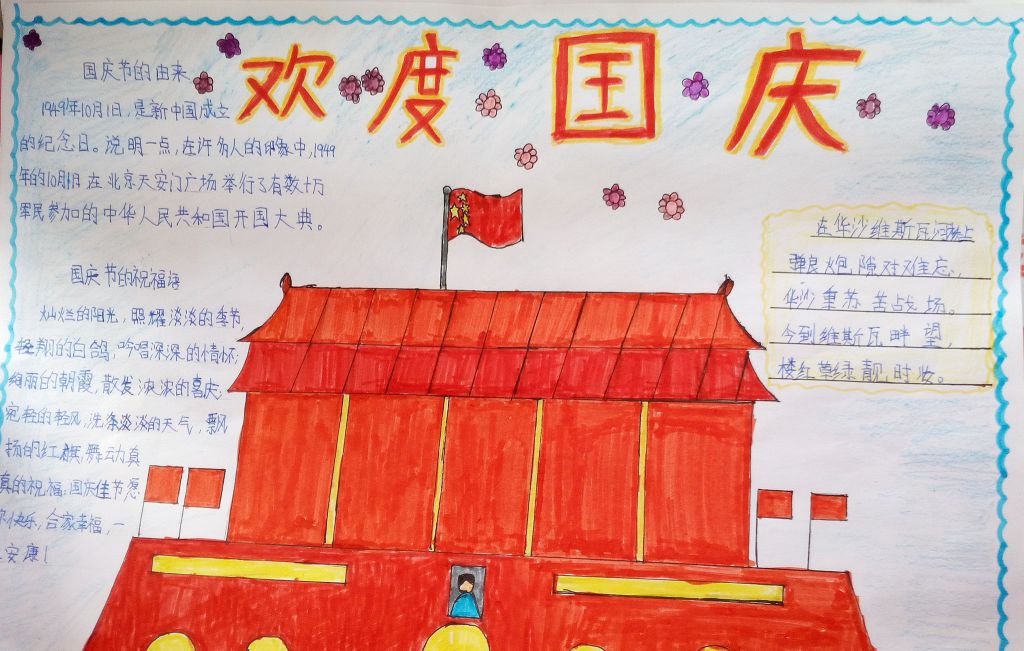 欢度国庆
国庆节的由来
1949年10月1日,是新中国成立
的纪念日。说明一点,在许多人的印象中,1949
年的10月1日在北京天安门广场举行了有数十万
军民参加的中华人民共和国开国大典。
国庆节的祝福语
灿烂的阳光,照耀淡淡的季节,
轻翔的白鸽,吟唱深深的情怀;
绚丽的朝霞,散发浓浓的喜庆;
宛轻的轻风,洗涤淡淡的天气,飘
扬的红旗,舞动真
真的祝福:国庆佳节愿
你快乐,合家幸福,一
安康!
在华沙维斯瓦河桥上
弹良炮隙对难忘,
华沙重苏苦战场。
今到维斯瓦畔望,
楼红草绿靓时妆。